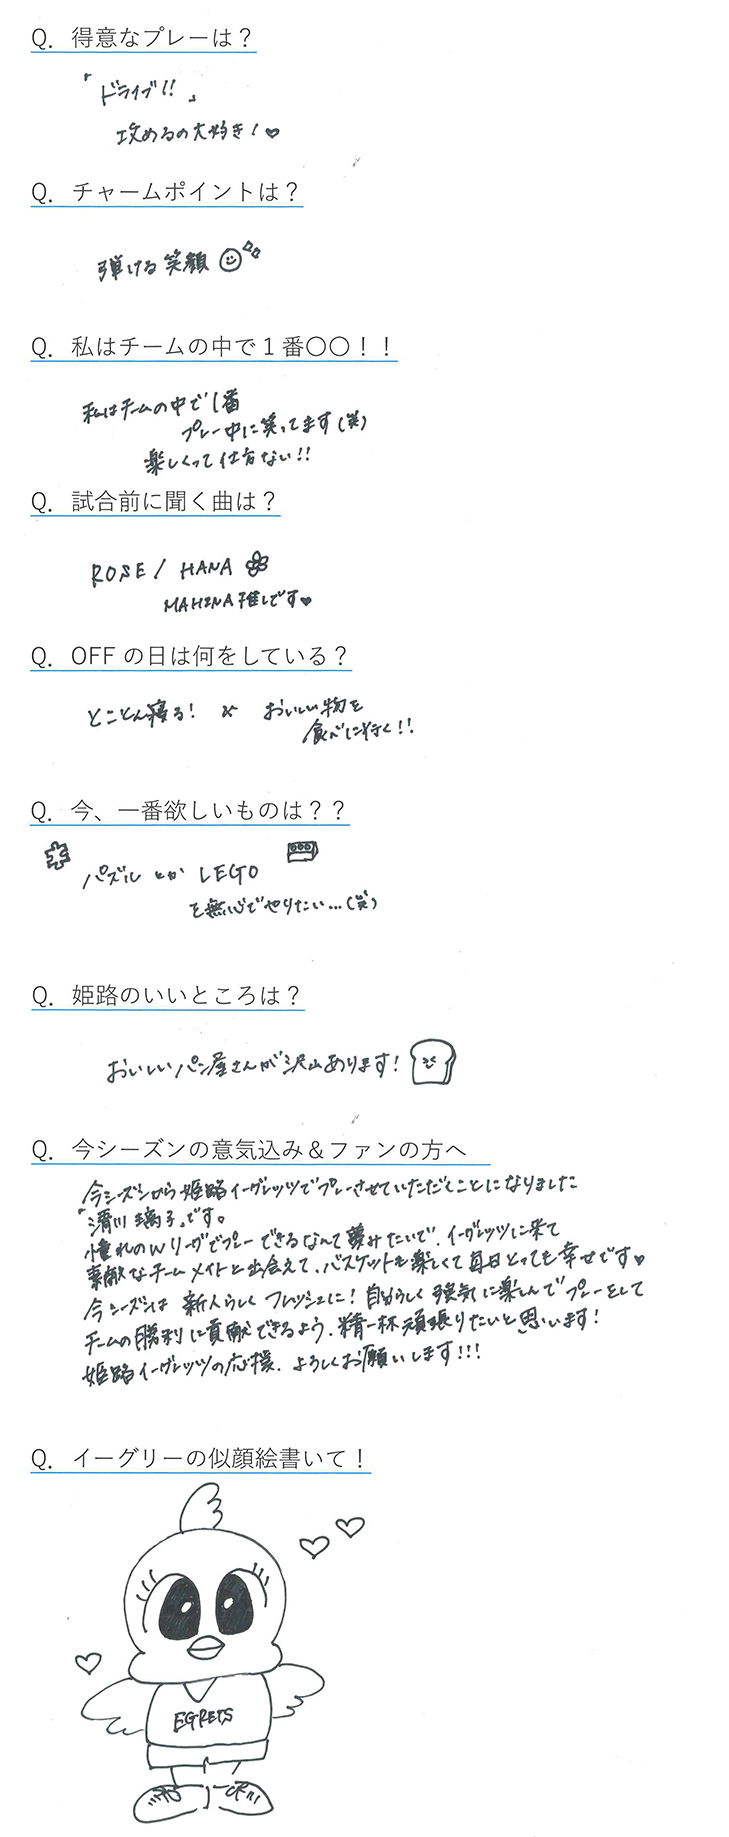 Q．得意なプレーは？
「ドライブ!!」
攻めるの大好き！♥
Q．チャームポイントは？
弾ける笑顔
Q．私はチームの中で１番〇〇！！
私はチームの中で1番
プレー中に笑ってます(笑)
楽しくって仕方ない!!
Q．試合前に聞く曲は？
ROSE / HANA
MAHINA推しです♥
Q．OFFの日は何をしている？
とことん寝る! & おいしい物を
食べに行く!!
Q．今、一番欲しいものは？？
パズルとか LEGO
を無心でやりたい…(笑)
Q．姫路のいいところは？
おいしいパン屋さんが沢山あります!
Q．今シーズンの意気込み＆ファンの方へ
今シーズンから姫路イーグレッツでプレーさせていただくことになりました
「濱川 璃子」です。
憧れのWリーグでプレーできるなんて夢みたいで、イーグレッツに来て
素敵なチームメイトと出会えて、バスケットも楽しくて毎日とっても幸せです♥
今シーズンは 新人らしく フレッシュに! 自分らしく 強気に楽しんでプレーをして
チームの勝利に貢献できるよう、精一杯頑張りたいと思います!
姫路イーグレッツの応援、よろしくお願いします!!!
Q．イーグリーの似顔絵書いて！
EGRETS